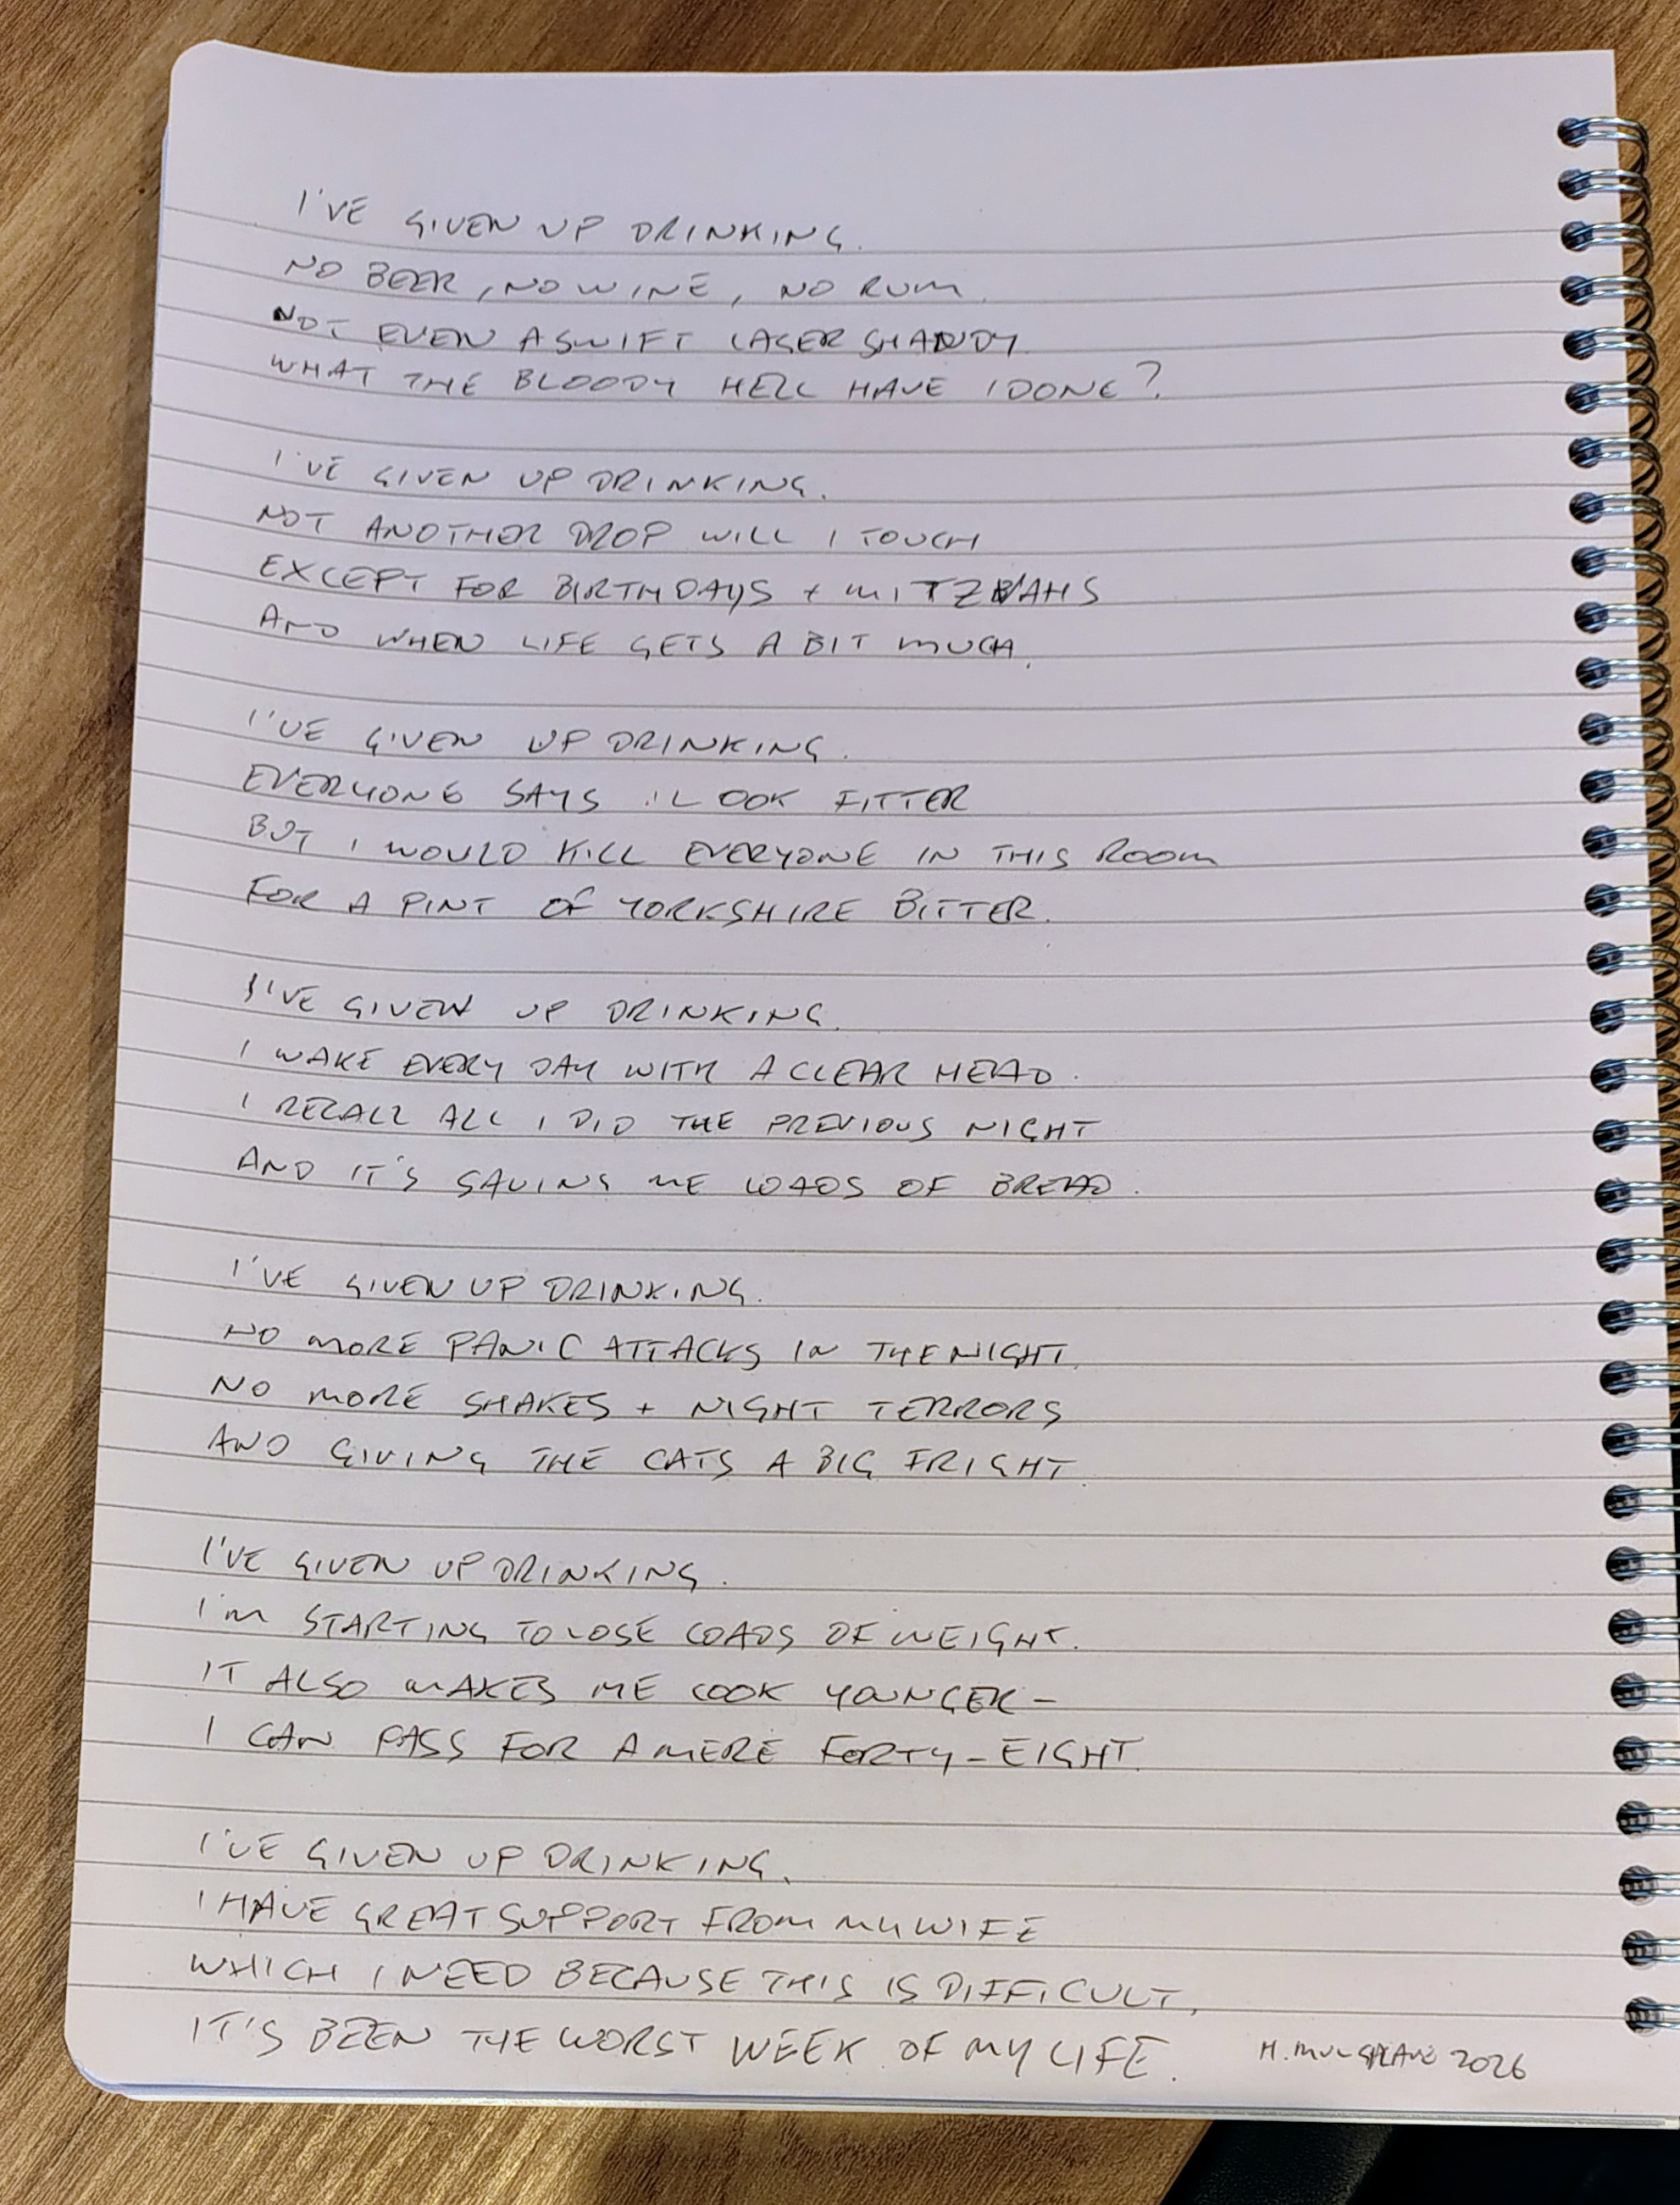 I'VE GIVEN UP DRINKING.
NO BEER, NO WINE, NO RUM.
NOT EVEN A SWIFT LAGER SHANDY
WHAT THE BLOODY HELL HAVE I DONE?
I'VE GIVEN UP DRINKING.
NOT ANOTHER DROP WILL I TOUCH
EXCEPT FOR BIRTHDAYS + MITZVAHS
AND WHEN LIFE GETS A BIT MUCH.
I'VE GIVEN UP DRINKING.
EVERYONE SAYS I LOOK FITTER
BUT I WOULD KILL EVERYONE IN THIS ROOM
FOR A PINT OF YORKSHIRE BITTER.
I'VE GIVEN UP DRINKING.
I WAKE EVERY DAY WITH A CLEAR HEAD.
I RECALL ALL I DID THE PREVIOUS NIGHT
AND IT'S SAVING ME LOADS OF BREAD.
I'VE GIVEN UP DRINKING.
NO MORE PANIC ATTACKS IN THE NIGHT.
NO MORE SHAKES + NIGHT TERRORS
AND GIVING THE CATS A BIG FRIGHT.
I'VE GIVEN UP DRINKING.
I'M STARTING TO LOSE LOADS OF WEIGHT.
IT ALSO MAKES ME LOOK YOUNGER -
I CAN PASS FOR A MERE FORTY-EIGHT.
I'VE GIVEN UP DRINKING.
I HAVE GREAT SUPPORT FROM MY WIFE
WHICH I NEED BECAUSE THIS IS DIFFICULT,
IT'S BEEN THE WORST WEEK OF MY LIFE.
2026